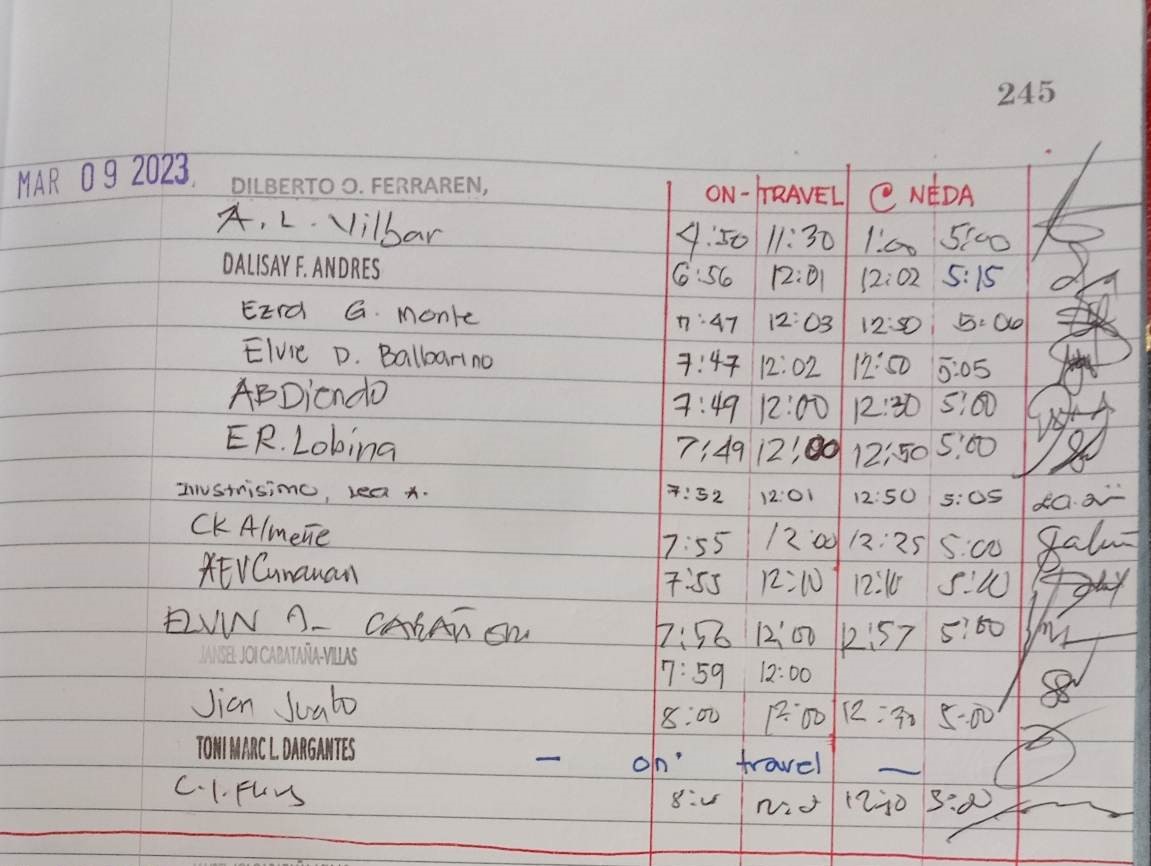 245
MAR 09 2023. DILBERTO O. FERRAREN, ON-TRAVEL @ NEDA
A. L. Vilbar 4:50 11:30 1:00 5:00
DALISAY F. ANDRES 6:56 12:01 12:02 5:15
Ezra G. Monte 7:47 12:03 12:50 5:06
Elvie D. Balbarino 7:47 12:02 12:50 5:05
ABDiendo 7:49 12:00 12:30 5:00
ER. Lobina 7:49 12:00 12:50 5:00
Illustrisimo, Lea A. 7:52 12:01 12:50 5:05
CK Almeñe 7:55 12:00 12:25 5:00
AEVCunanan 7:55 12:10 12:10 5:10
ELVIN A. 7:56 12:00 12:57 5:00
JANSEL JOI CABATAÑA-VILLAS 7:59 12:00
Jian Juabo 8:00 12:00 12:30 5:00
TONI MARC L. DARGANTES - on travel -
C.I. 12:10 5:00